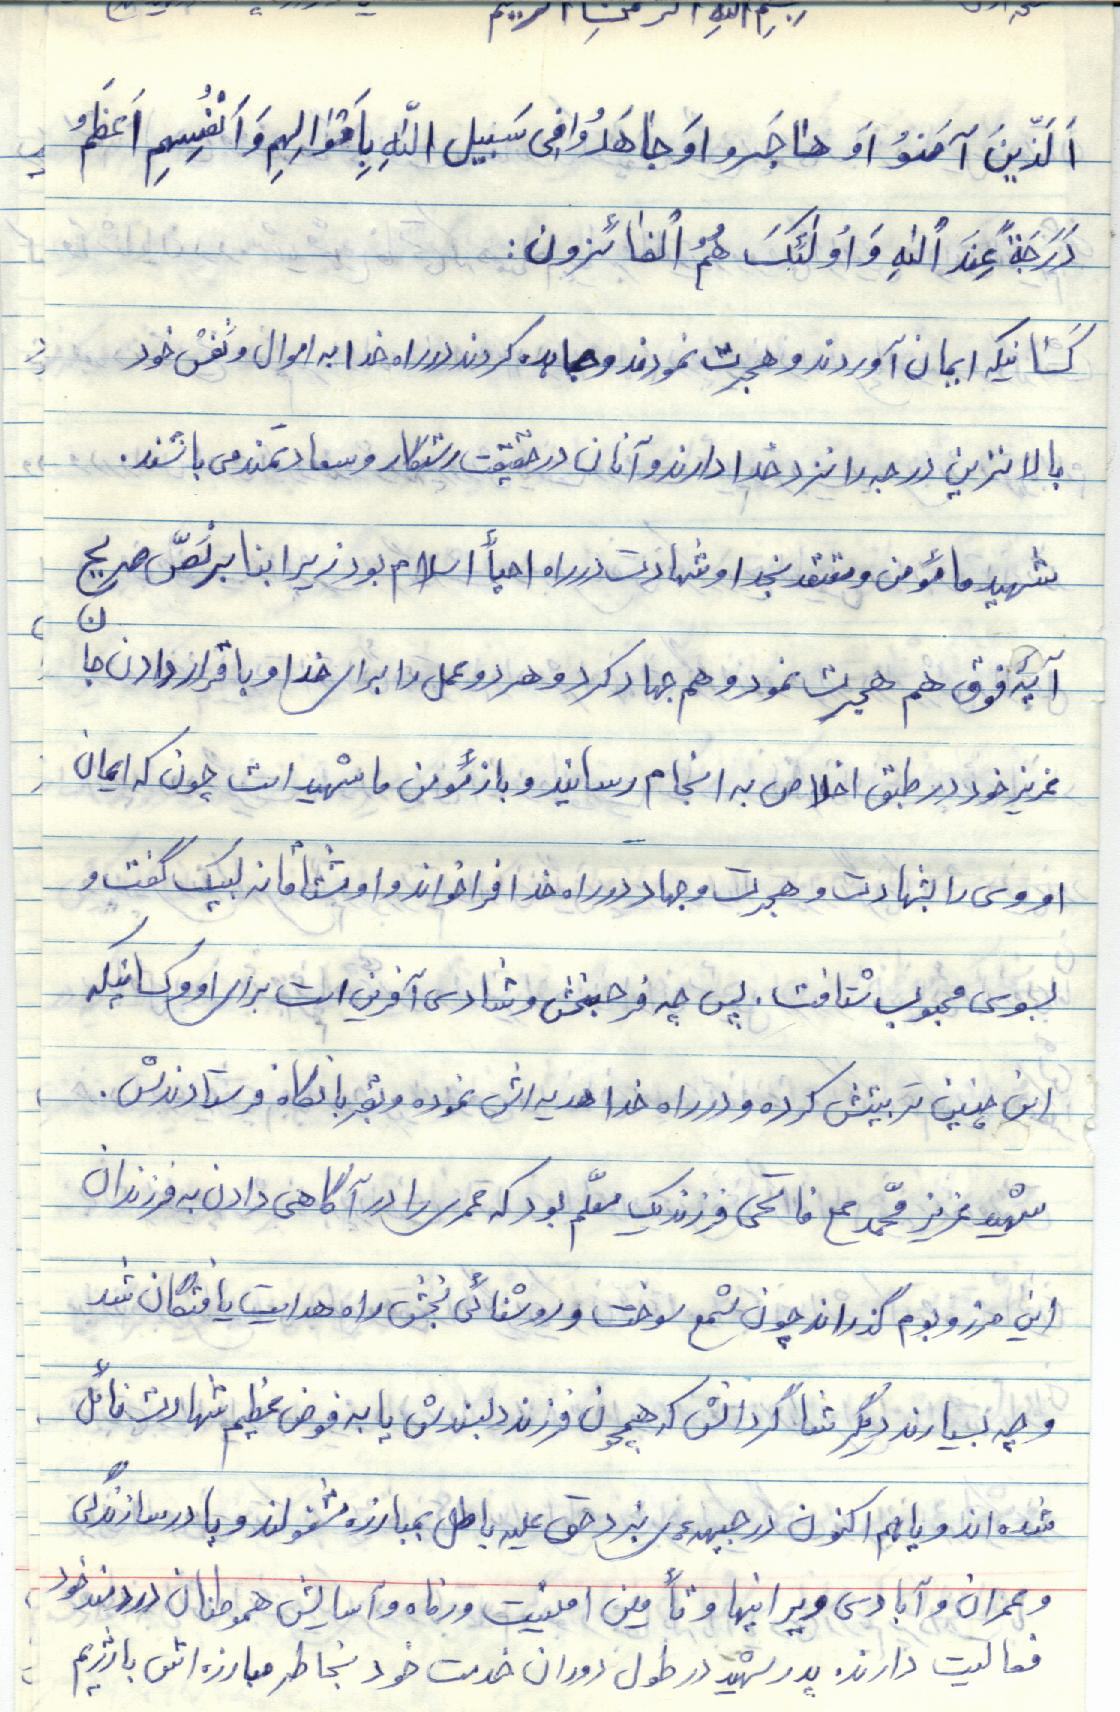 بسم الله الرحمن الرحیم
اَلَّذینَ آمَنوُ اوَ هٰاجَرو اوَ جٰاهَدُوافِی سَبیل اللّهِ بِاَمْوٰالِهِم وَ اَنْفُسِهِم اَعظَمُ
دَرَجَةً عِندَ اللهِ وَ اوُلٰئکَ هُمُ الْفٰائزون :
کَسٰانیکه ایمان آوردند و هجرت نمودند و جاهده کردند در راه خدا به اموال و نفس خود
بالاترین درجه را نزد خدا دارند و آنان در حقیقت رستگار و سعادتمند می باشند .
شهید ما مؤمن و معتقد بخدا و شهادت در راه احیأ اسلام بود زیرا بنا بر نَصّ صریح
آیهٔ فوق هم هجرت نمود و هم جهاد کرد و هر دو عمل را برای خدا و با قرار دادن جان
عزیز خود در طبق اخلاص به انجام رسانید و باز مؤمن ما شهید است چون که ایمان
او وی را بشهادت و هجرت و جهاد در راه خدا فرا خواند و او مشتاقانه لبیک گفت و
بسوی محبوب شتافت . پس چه فرحبخش و شادی آفرین است برای او و کسانیکه
این چنین تربیتش کرده و در راه خدا هدیه اش نموده و بقربانگاه فرستادندش .
شهید عزیز محمّد فاتحی فرزند یک معلّم بود که عمری را در آگاهی دادن به فرزندان
این مرز و بوم گذراند چون شمع سوخت و روشنائی بخش راه هدایت یافتگان شد
و چه بسیارند دیگر شاگردانش که همچون فرزند دلبندش یا به فوض عظیم شهادت نائل
شده اند و یا هم اکنون در جبههء نبرد حق علیه باطل بمبارزه مشغولند و یا در سازندگی
و عمران و آبادی ویرانیها و تأمین امنیت و رفاه و آسایش هموطنان دردمند خود
فعالیت دارند. پدر شهید در طول دوران خدمت خود بخاطر مبارزه اش با رژیم